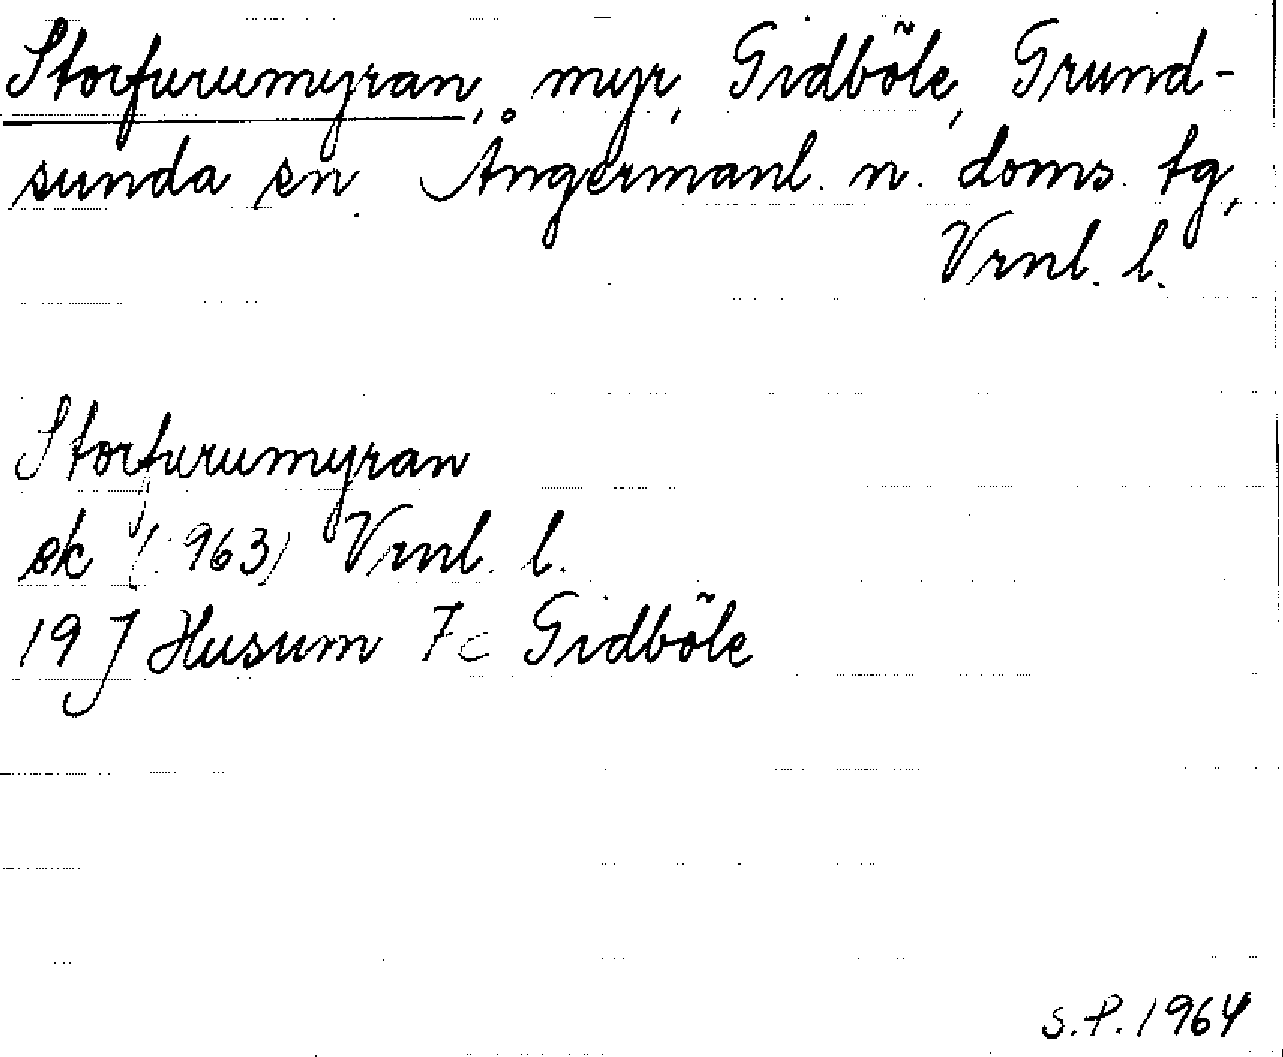 Storfurumyran, myr, Gidböle, Grund-
sunda sn. Ångermanl. n. doms. tg,
Vrnl. l.
Storfurumyran
ek (1963) Vrnl. l.
19 J Husum 7c Gidböle
S.P. 1964